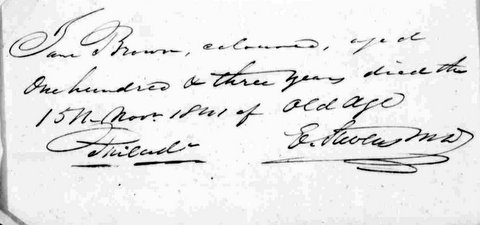 Jane Brown, coloured, aged
One hundred & three years died the
15th Nov. 1841 of Old age
Philada
E. Stevens MD